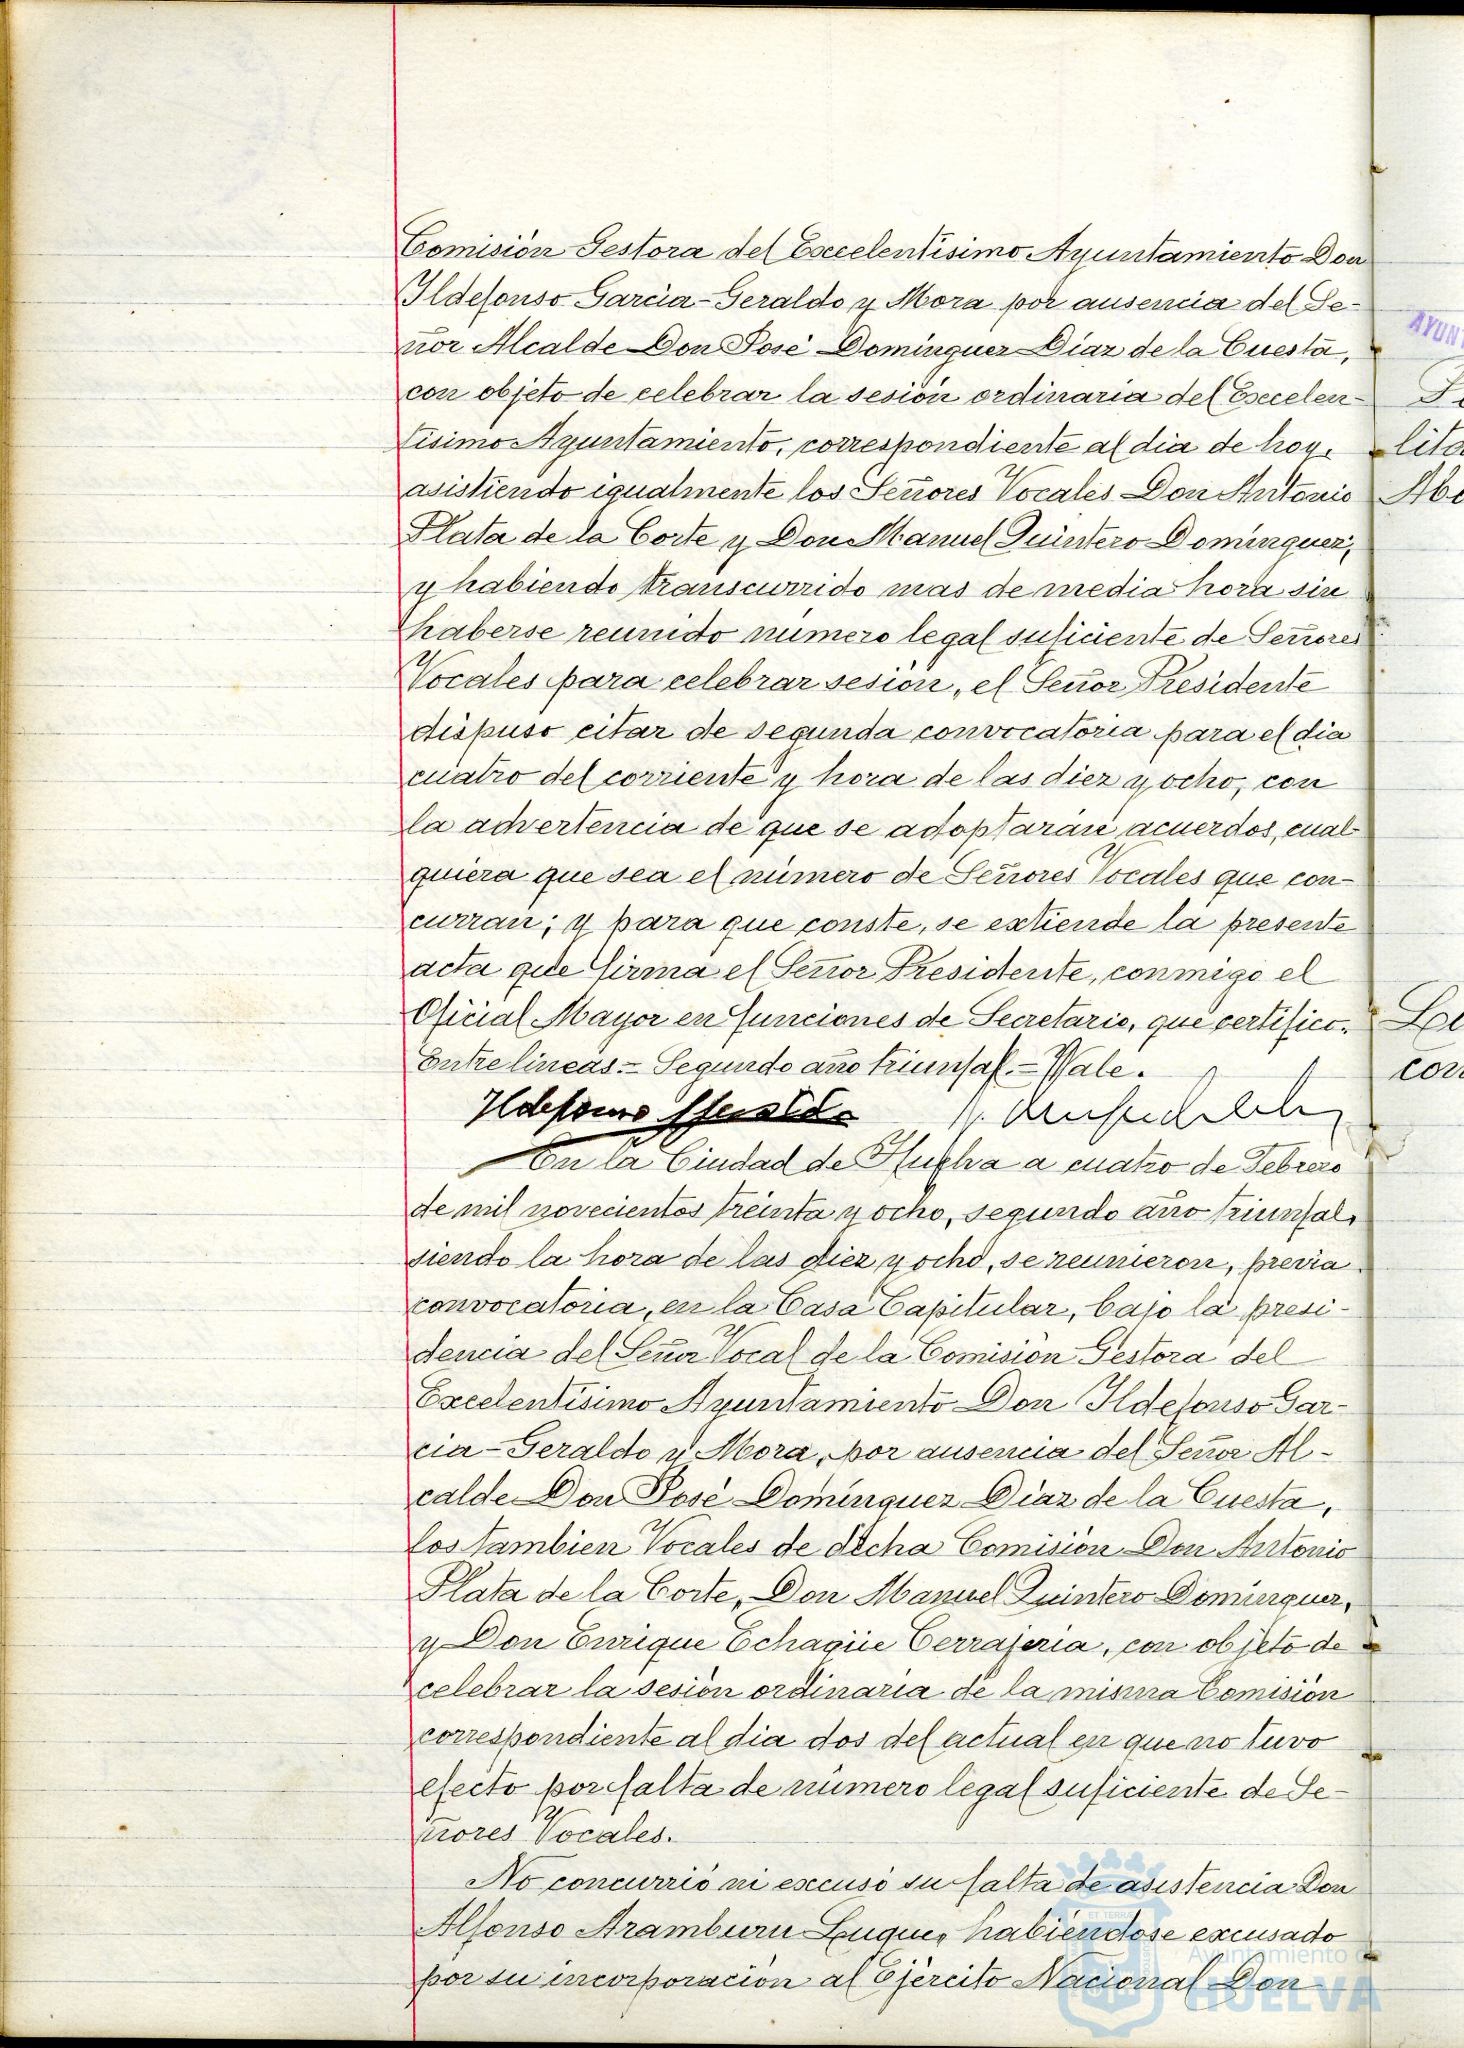 Comisión Gestora del Excelentísimo Ayuntamiento Don
Ildefonso García-Geraldo y Mora por ausencia del Se-
ñor Alcalde Don José Domínguez Díaz de la Cuesta,
con objeto de celebrar la sesión ordinaria del Excelen-
tísimo Ayuntamiento, correspondiente al dia de hoy,
asistiendo igualmente los Señores Vocales Don Antonio
Plata de la Corte y Don Manuel Quintero Domínguez,
y habiendo transcurrido mas de media hora sin
haberse reunido número legal suficiente de Señores
Vocales para celebrar sesión, el Señor Presidente
dispuso citar de segunda convocatoria para el dia
cuatro del corriente y hora de las diez y ocho, con
la advertencia de que se adoptarán acuerdos, cual-
quiera que sea el número de Señores Vocales que con-
curran; y para que conste, se extiende la presente
acta que firma el Señor Presidente, conmigo el
Oficial Mayor en funciones de Secretario, que certifico.
Entrelineas.= Segundo año triunfal.= Vale.
Ildefonso Geraldo
En la Ciudad de Huelva a cuatro de Febrero
de mil novecientos treinta y ocho, segundo año triunfal,
siendo la hora de las diez y ocho, se reunieron, previa
convocatoria, en la Casa Capitular, bajo la presi-
dencia del Señor Vocal de la Comisión Gestora del
Excelentísimo Ayuntamiento Don Ildefonso Gar-
cía-Geraldo y Mora, por ausencia del Señor Al-
calde Don José Domínguez Díaz de la Cuesta,
los tambien Vocales de dicha Comisión Don Antonio
Plata de la Corte, Don Manuel Quintero Domínguez,
y Don Enrique Echagüe Cerrajería, con objeto de
celebrar la sesión ordinaria de la misma Comisión
correspondiente al dia dos del actual en que no tuvo
efecto por falta de número legal suficiente de Se-
ñores Vocales.
No concurrió ni excusó su falta de asistencia Don
Alfonso Aramburu Luque, habiéndose excusado
por su incorporación al Ejército Nacional Don
Ayuntamiento de
HUELVA